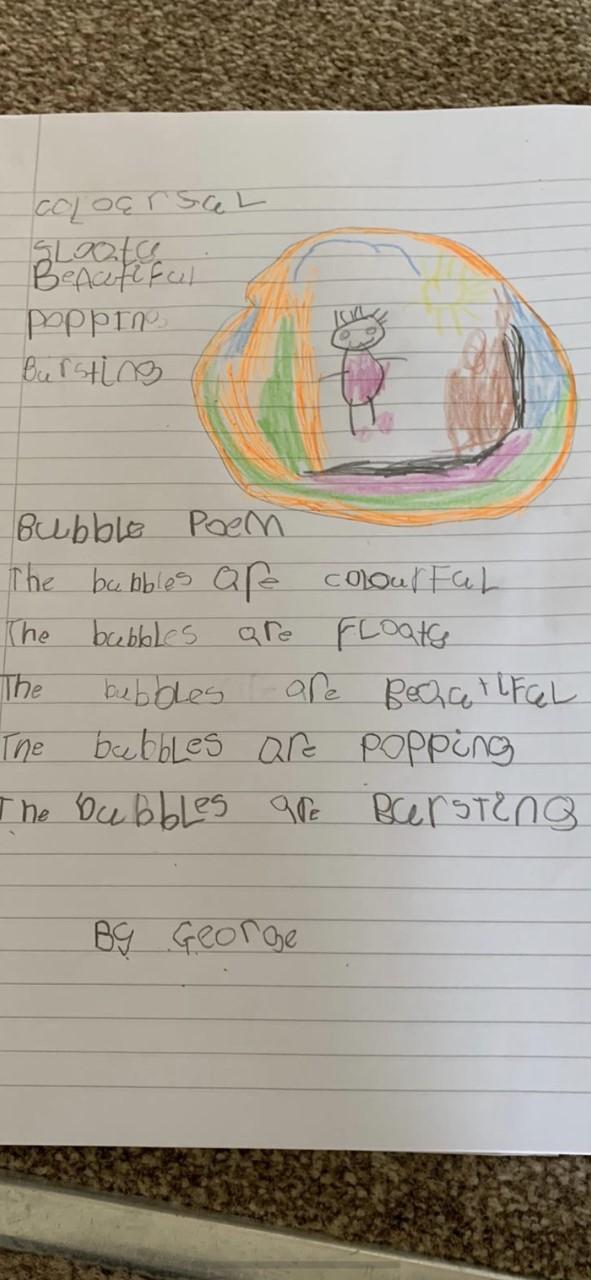 coloersal
sLoaty
Beautiful
popping
Bursting
Bubble Poem
The bubbles are colourFuL
The bubbles are FLoaty
The bubbles are BeautiFuL
The bubbles are popping
The bubbLes are Bursting
By George